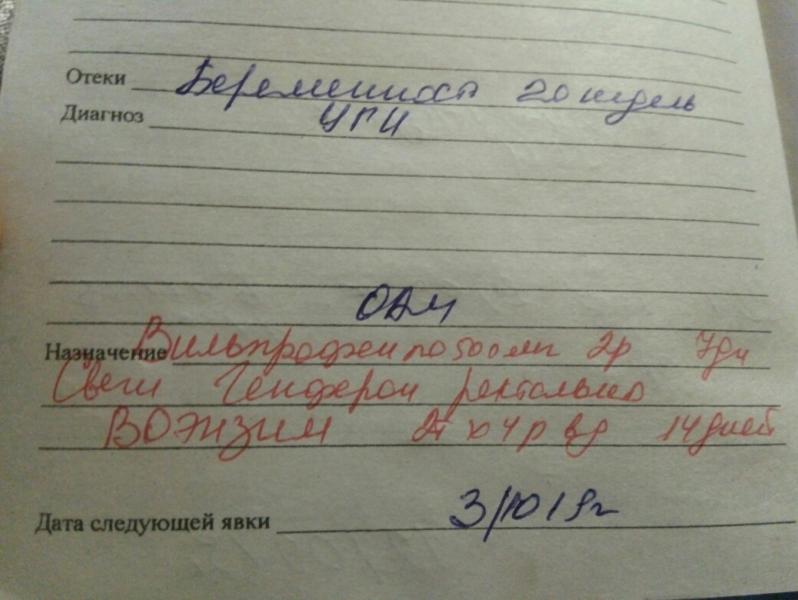 Отеки Беременность 20 недель
Диагноз УГИ
ОАМ
Назначение Вильпрофен по 500 мг 2р 7дн
Свечи Генферон ректально
ВОЭНЗИМ 2т х 4р вд 14 дней
Дата следующей явки 3/10 19г